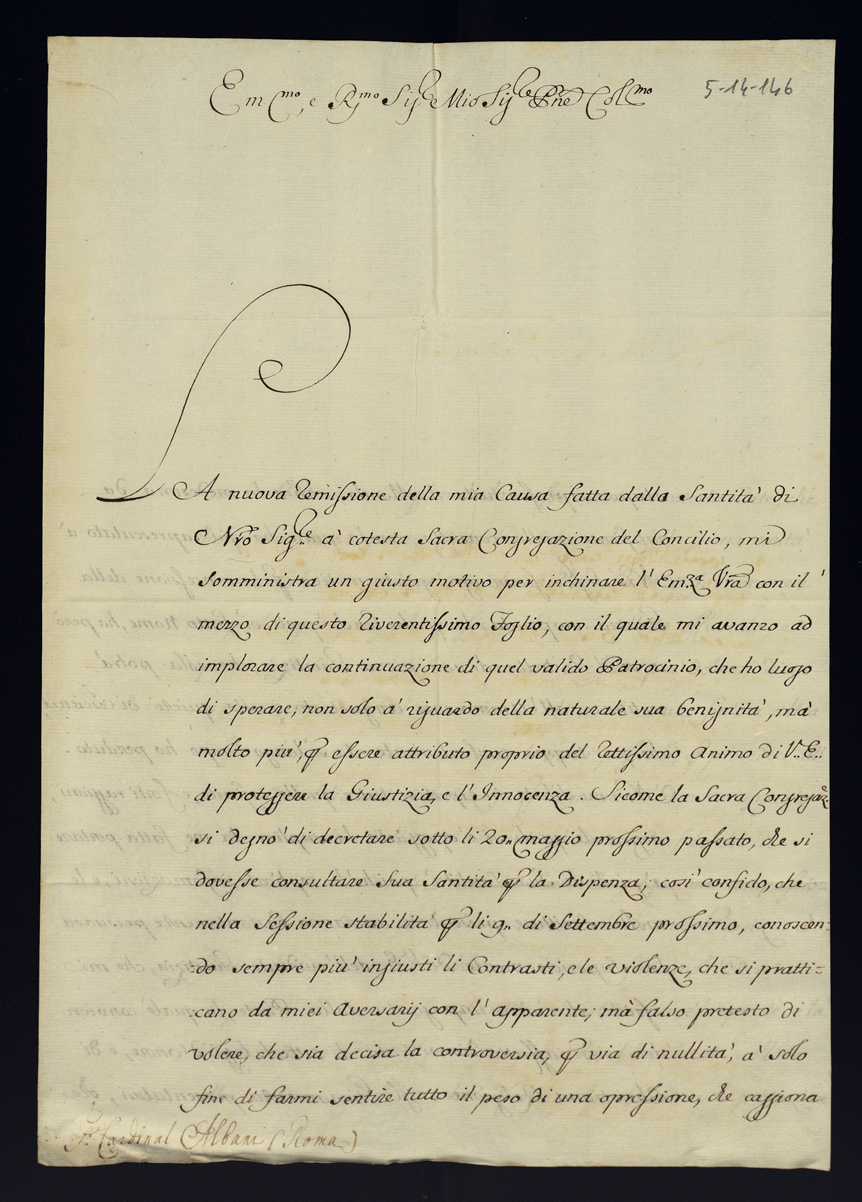 Em.mo, e R.mo Sig.re Mio Sig.re Pne Col.mo
5-14-146
LA nuova remissione della mia Causa fatta dalla Santità di
Nrõ Sig.re à cotesta Sacra Congregazione del Concilio, mi
somministra un giusto motivo per inchinare l'Em.za Vrã con il
mezzo di questo riverentissimo Foglio, con il quale mi avanzo ad
implorare la continuazione di quel valido Patrocinio, che ho luogo
di sperare, non solo à riguardo della naturale sua benignità, mà
molto più, ꝑ essere attributo proprio del rettissimo Animo di V.. E..
di proteggere la Giustizia, e l'Innocenza. Sicome la Sacra Congregaz.
si degnò di decretare sotto li 20.. Maggio prossimo passato, che si
dovesse consultare Sua Santità ꝑ la Dispenza, così confido, che
nella Sessione stabilita ꝑ li 9.. di Settembre prossimo, conoscen:
:do sempre più ingiusti li Contrasti, e le violenze, che si pratti:
:cano da miei Aversarij con l'apparente, mà falso pretesto di
volere, che sia decisa la controversia, ꝑ via di nullità, à solo
fine di farmi sentire tutto il peso di una opressione, che caggiona
Cardinal Albani (Roma)